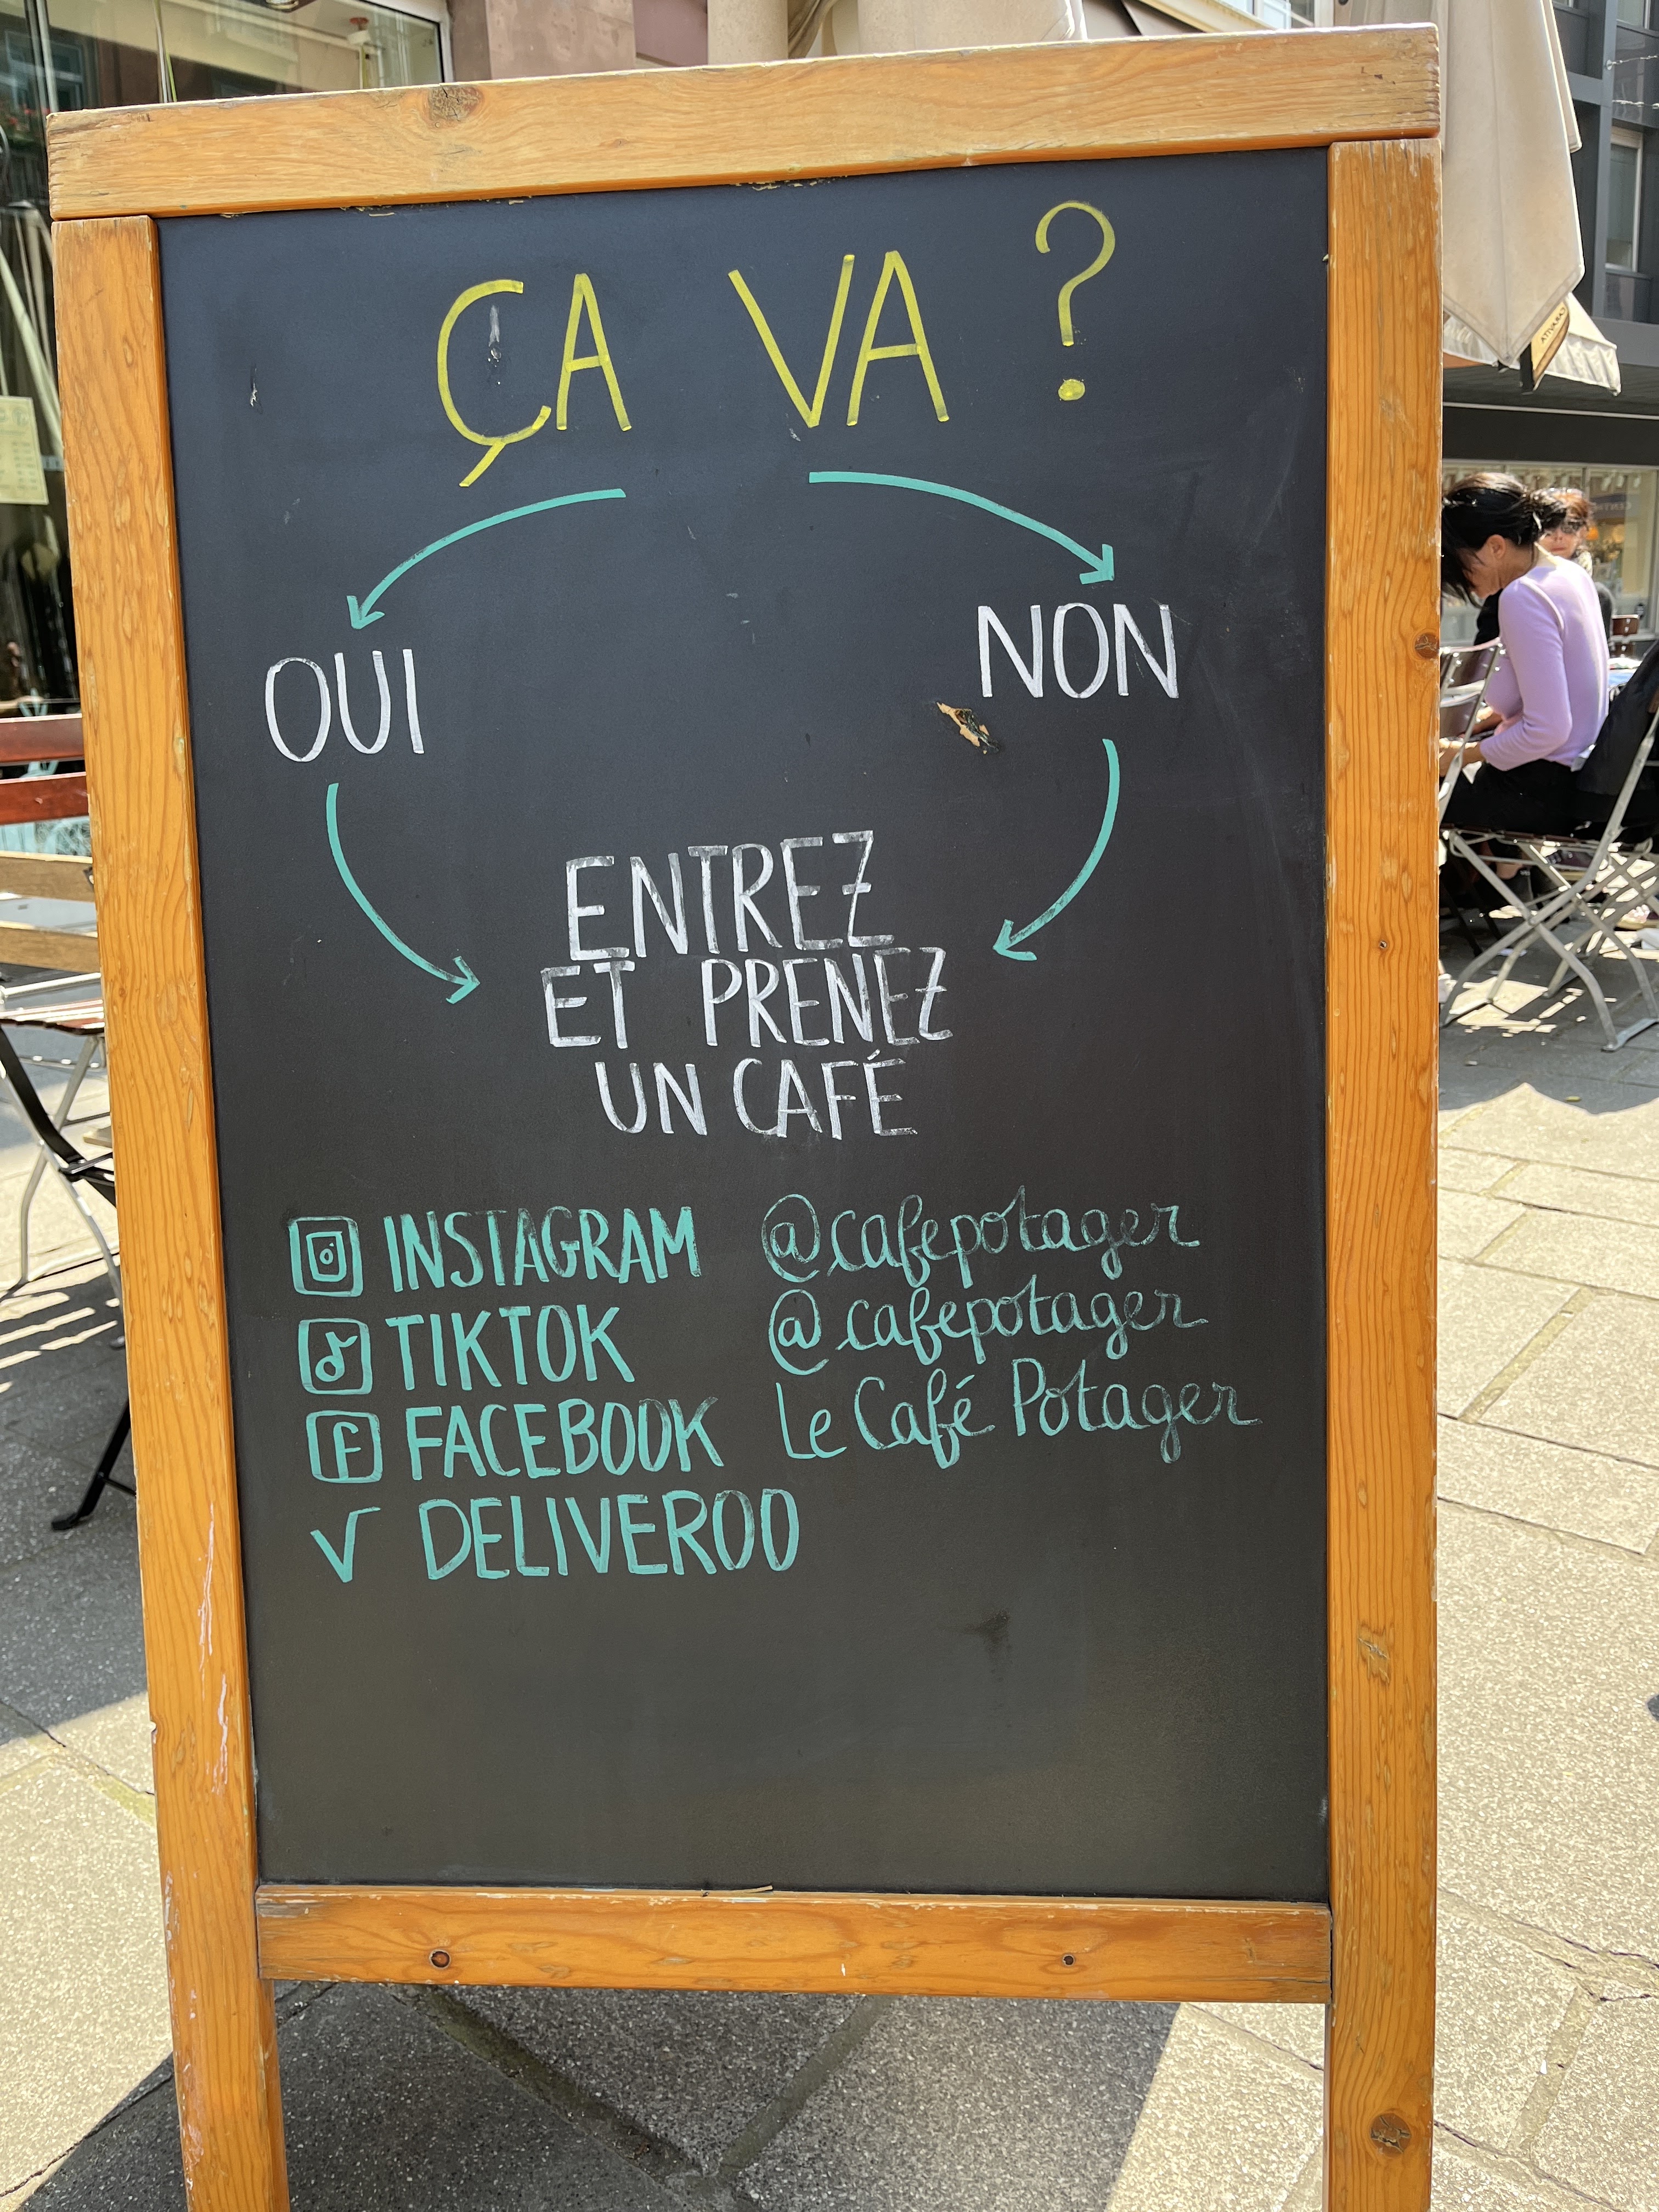 ÇA VA ?
OUI
NON
ENTREZ
ET PRENEZ
UN CAFÉ
INSTAGRAM @cafepotager
TIKTOK @cafepotager
FACEBOOK Le Café Potager
√ DELIVEROO